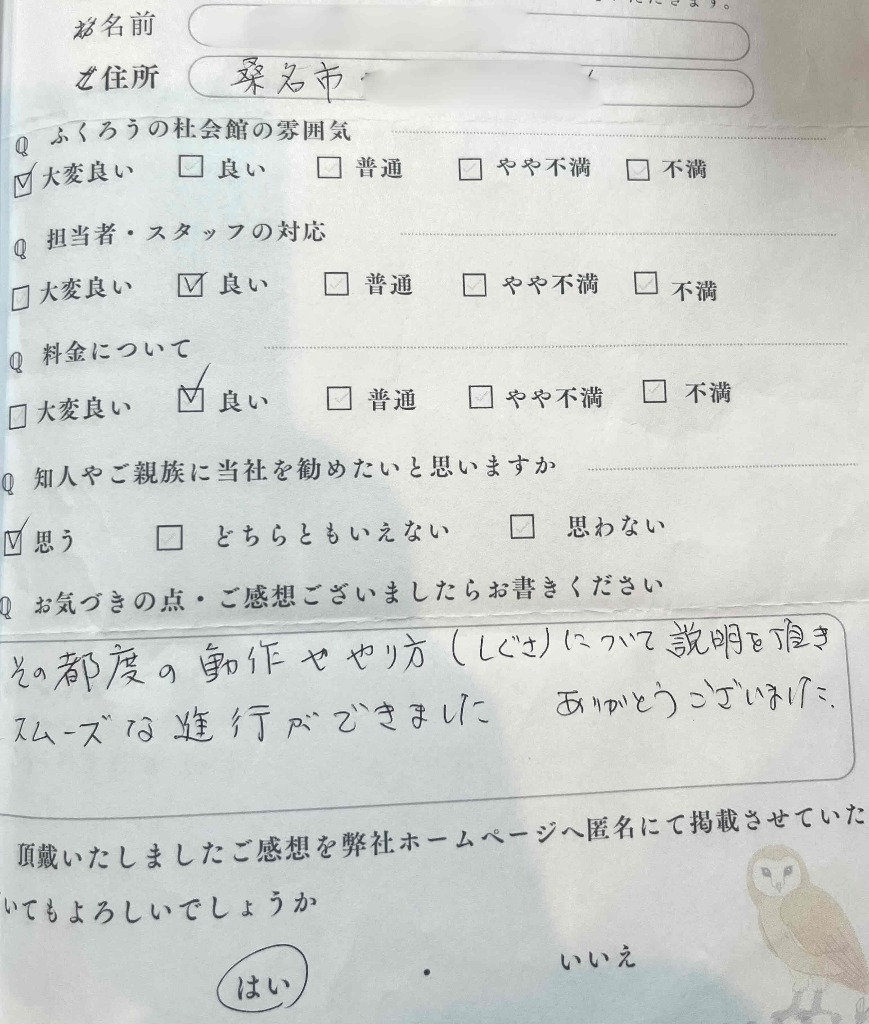 名前
住所 桑名市
Q ふくろうの杜会館の雰囲気
大変良い 良い 普通 やや不満 不満
Q 担当者・スタッフの対応
大変良い 良い 普通 やや不満 不満
Q 料金について
大変良い 良い 普通 やや不満 不満
Q 知人やご親族に当社を勧めたいと思いますか
思う どちらともいえない 思わない
Q お気づきの点・ご感想ございましたらお書きください
その都度の動作ややり方(しぐさ)について説明を頂き
スムーズな進行ができました ありがとうございました.
頂戴いたしましたご感想を弊社ホームページへ匿名にて掲載させていた
いてもよろしいでしょうか
はい ・ いいえ